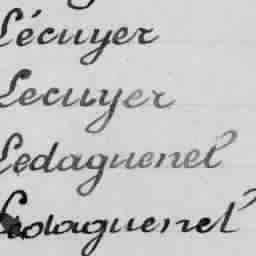 Lécuyer
Lecuyer
Ledaguenel
Ledaguenel